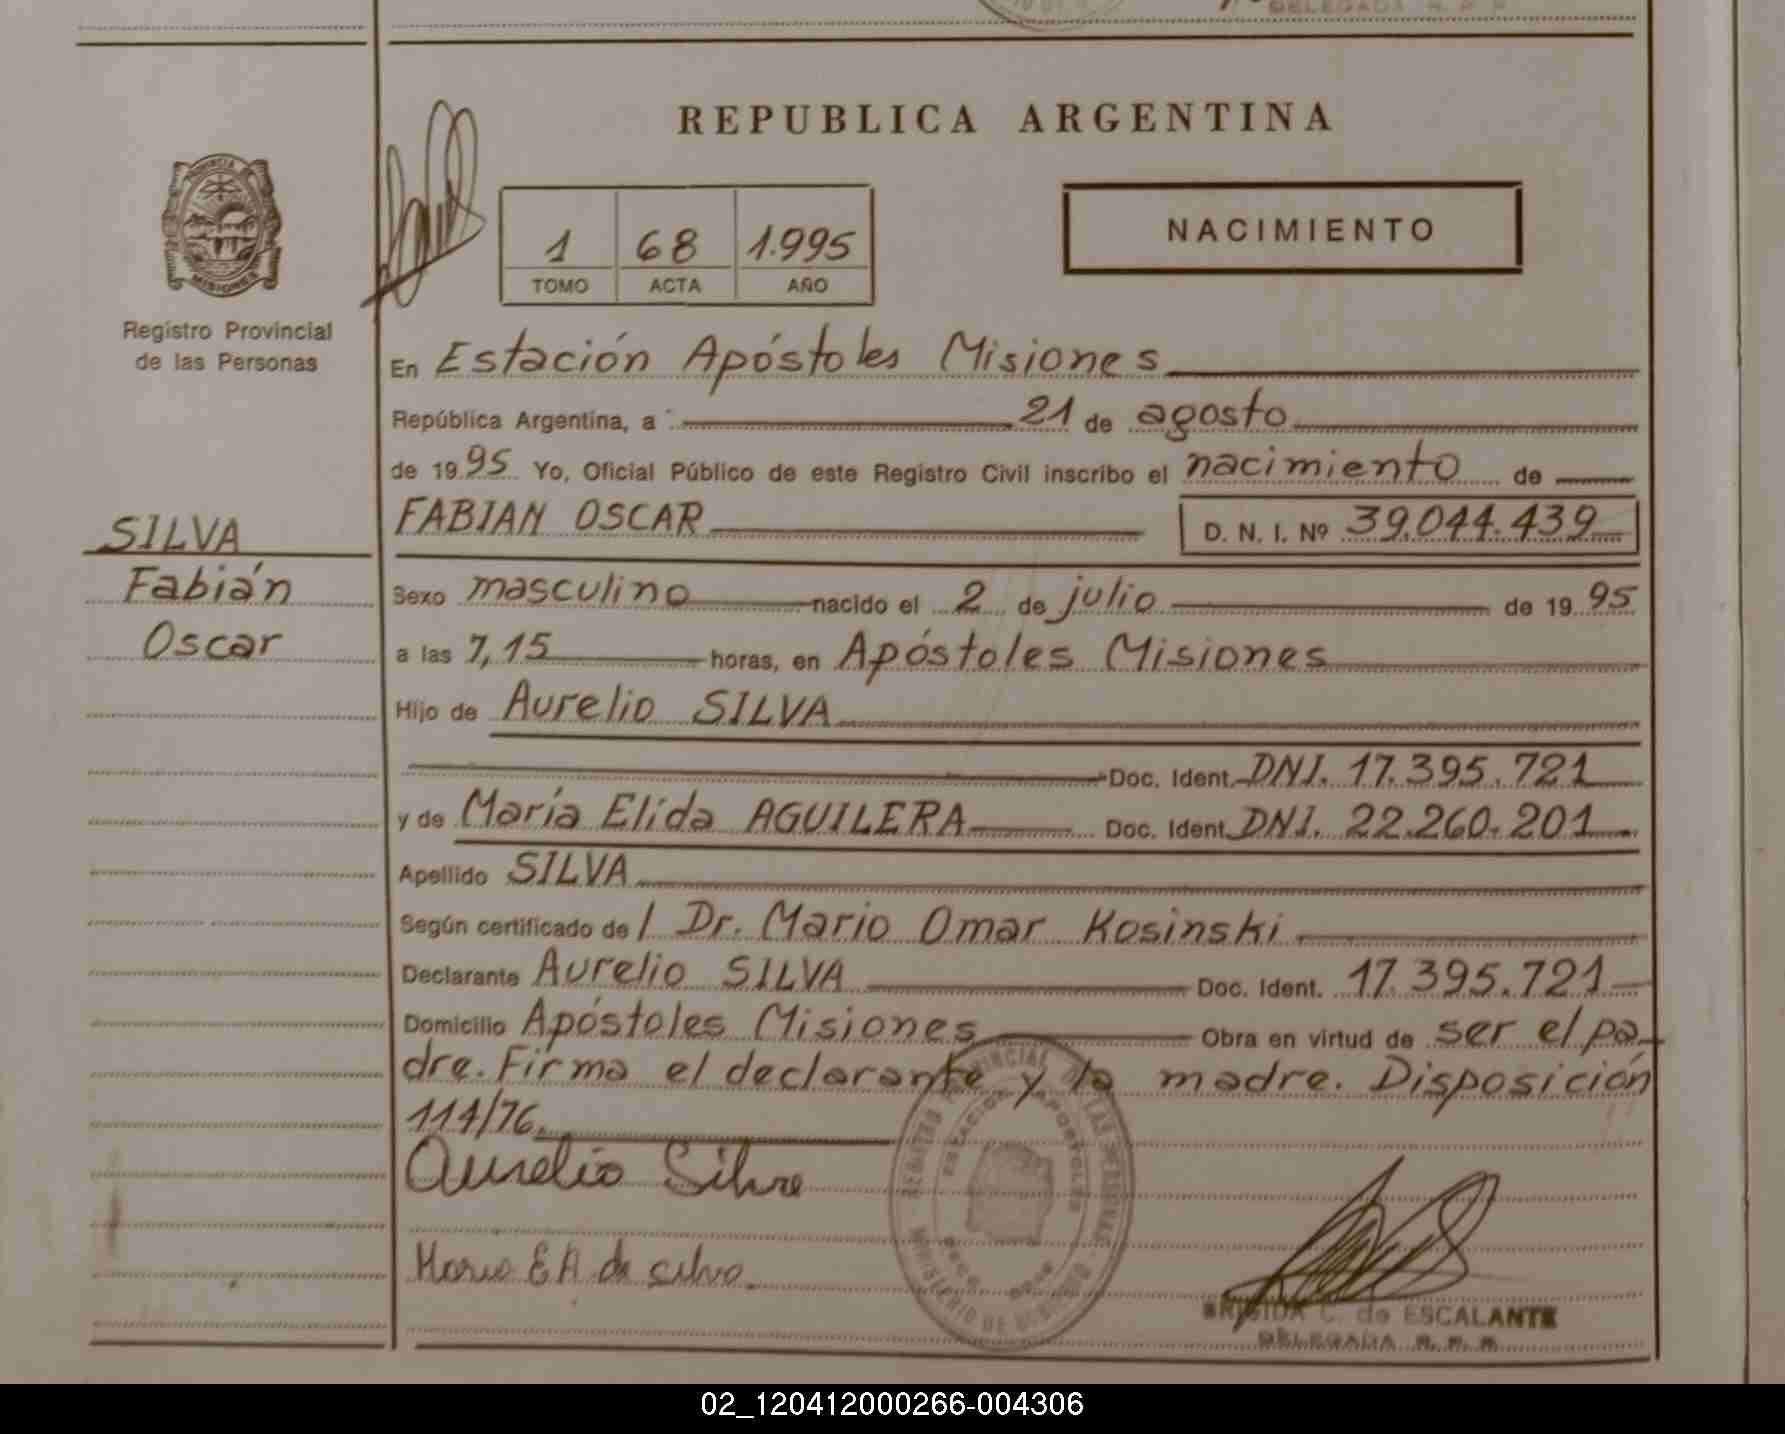 DELEGADA R. P. P.
REPUBLICA ARGENTINA
PROVINCIA
MISIONES
Registro Provincial
de las Personas
1 68 1.995
TOMO ACTA AÑO
NACIMIENTO
En Estación Apóstoles Misiones
República Argentina, a 21 de agosto
de 1995 Yo, Oficial Público de este Registro Civil inscribo el nacimiento de
SILVA
Fabián
Oscar
FABIAN OSCAR D. N. I. Nº 39.044.439
Sexo masculino nacido el 2 de julio de 1995
a las 7,15 horas, en Apóstoles Misiones
Hijo de Aurelio SILVA
Doc. Ident. DNI. 17.395.721
y de María Elida AGUILERA Doc. Ident. DNI. 22.260.201
Apellido SILVA
Según certificado de / Dr. Mario Omar Kosinski
Declarante Aurelio SILVA Doc. Ident. 17.395.721
Domicilio Apóstoles Misiones Obra en virtud de ser el pa-
dre. Firma el declarante y la madre. Disposición
114/76.
Aurelio Silva
Maria E A de silva.
REGISTRO PROVINCIAL DE LAS PERSONAS
ESTACION APOSTOLES
MINISTERIO DE GOBIERNO
BRIGIDA C. de ESCALANTE
DELEGADA R. P. P.
02_120412000266-004306